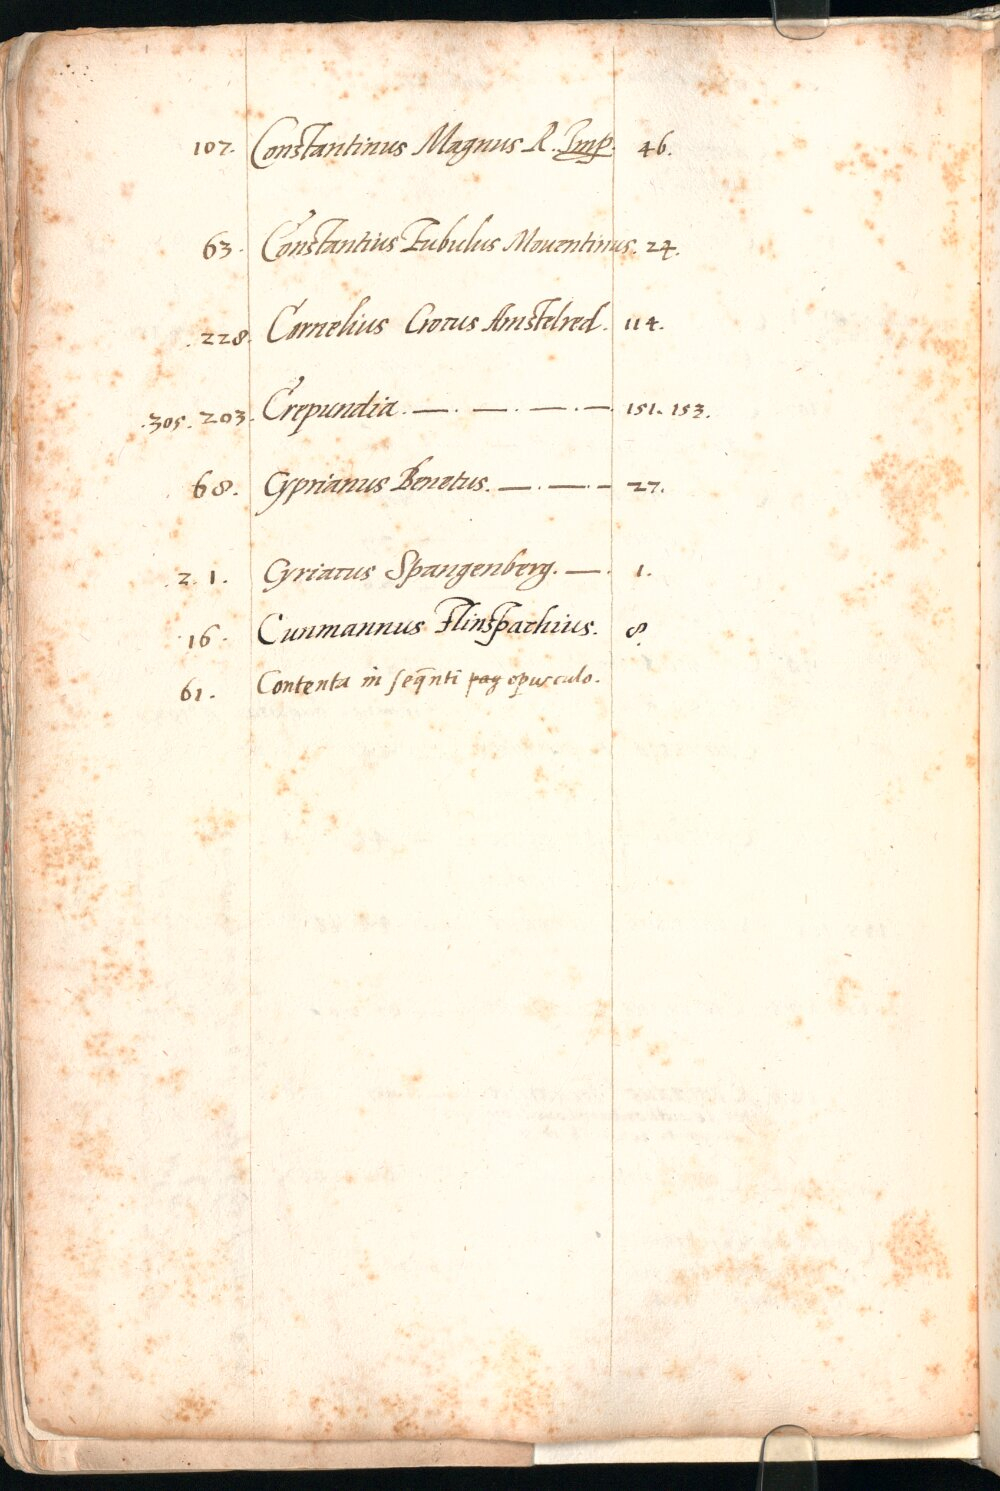 107. Constantinus Magnus R. Imp. 46.
63. Constantius Tubulus Mouentinus. 24.
.228. Cornelius Crocus Amstelred. 114.
.305. 203. Crepundia. —. —. —. — 151. 153.
68. Cyprianus Benetus. —. —. — 27.
.2. 1. Cyriacus Spangenberg. —. 1.
.16. Cunmannus Flinspachius. 8.
61. Contenta in seqnti pag opusculo.